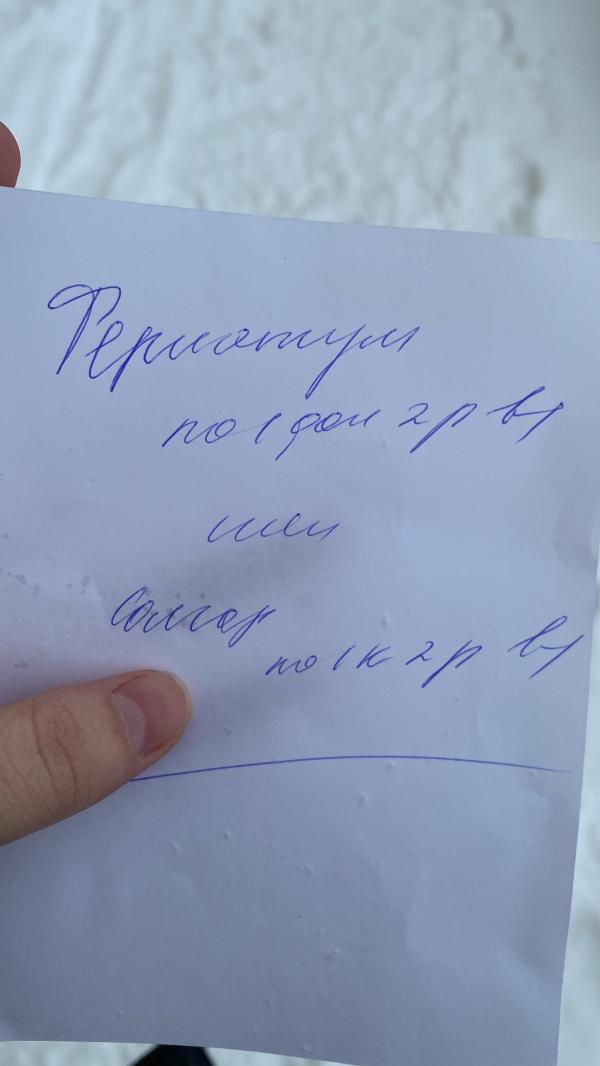 Ферлатум
по 1 фл 2 р в/
или
Солгар
по 1 к 2 р в/